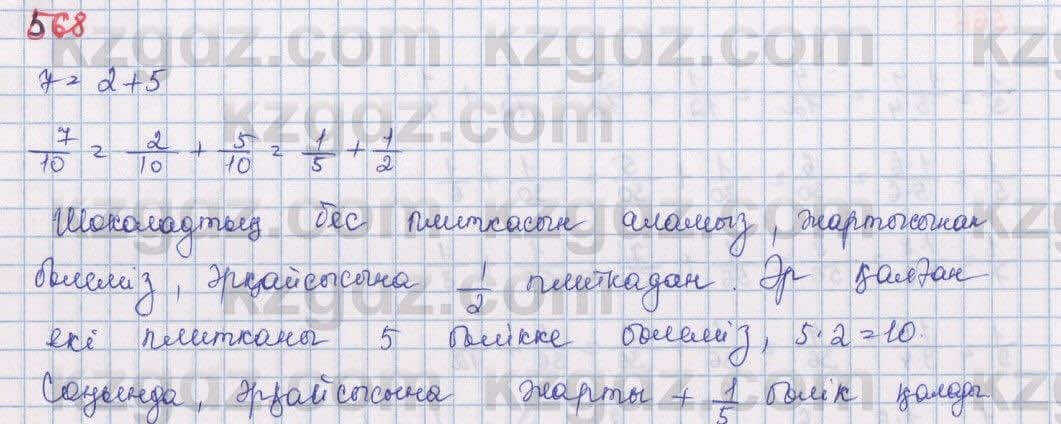 568
7 = 2+5
7/10 = 2/10 + 5/10 = 1/5 + 1/2
Шоколадтың бес плиткасын аламыз, жартысынан
бөлеміз, әрқайсысына 1/2 плиткадан. Әр қалған
екі плитканы 5 бөлікке бөлеміз, 5·2=10.
Соңында, әрқайсысына жарты + 1/5 бөлік қалады
kzgdz.com